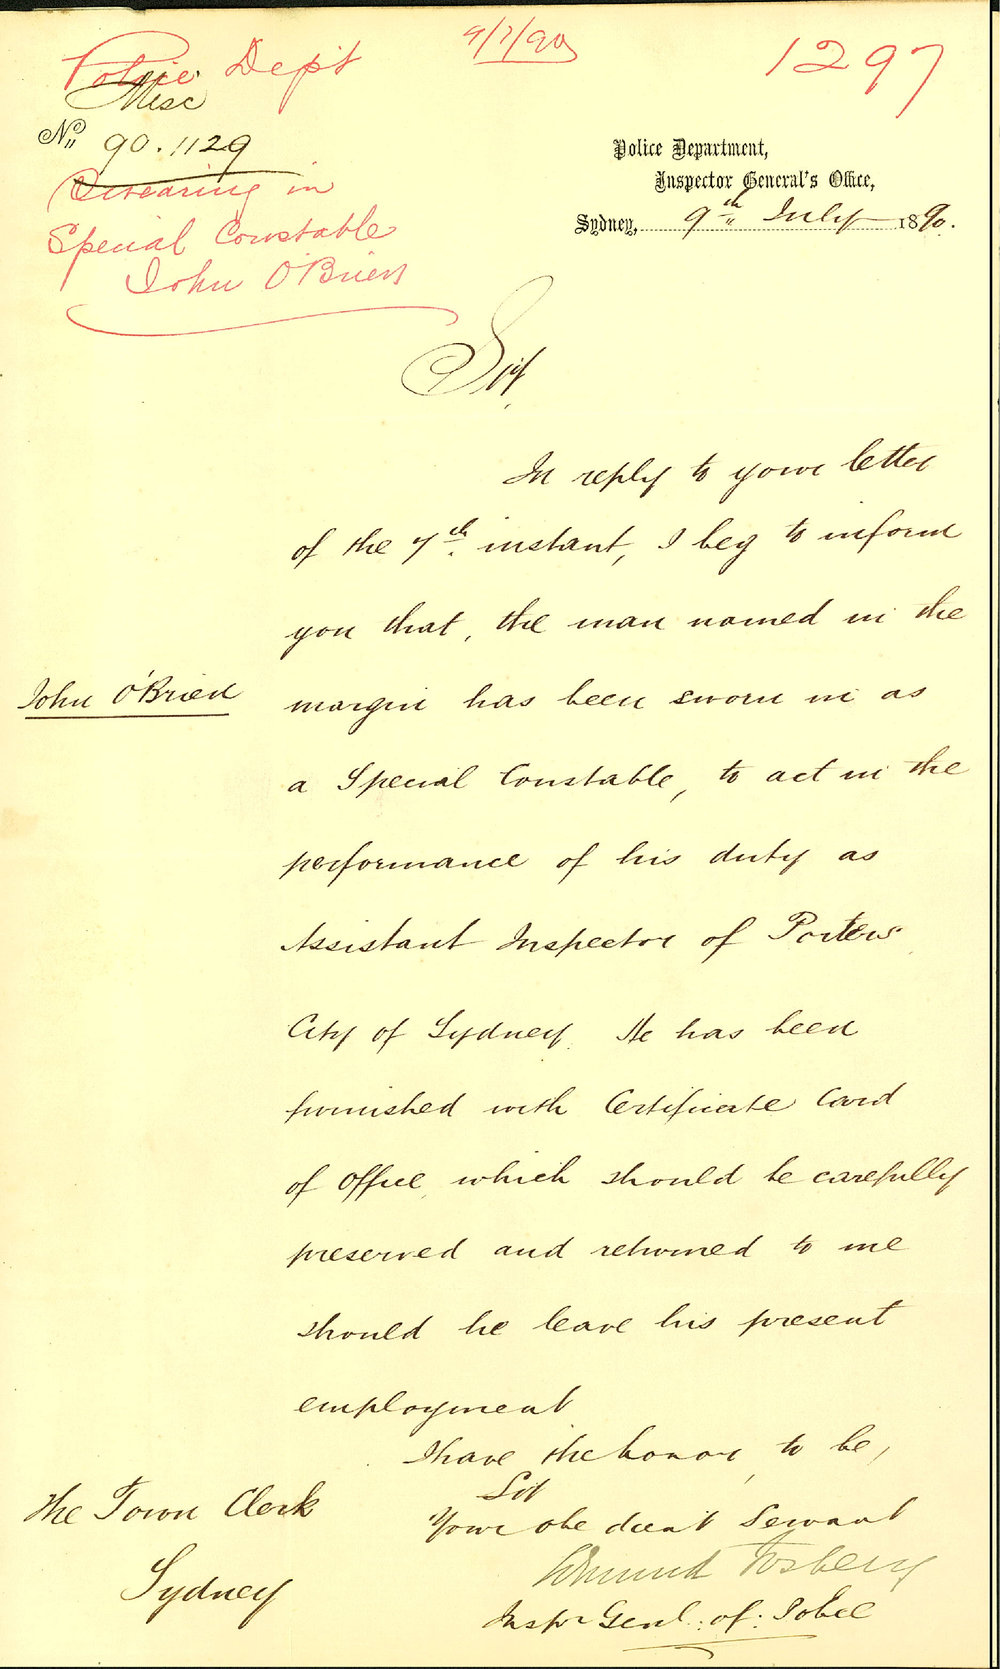 Police Dept
9/7/90
1297
Misc
No. 90.1129
Swearing in
Special Constable
John O'Brien
Police Department,
Inspector General's Office,
Sydney, 9th July 1890.
Sir,
In reply to your letter
of the 7th instant, I beg to inform
you that, the man named in the
John O'Brien
margin has been sworn in as
a Special Constable, to act in the
performance of his duty as
Assistant Inspector of Porters
City of Sydney. He has been
furnished with Certificate Card
of Office, which should be carefully
preserved and returned to me
should he leave his present
employment
I have the honor, to be,
Sir
Your obedient Servant
Edmund Fosbery
Inspr Genl: of: Police
The Town Clerk
Sydney